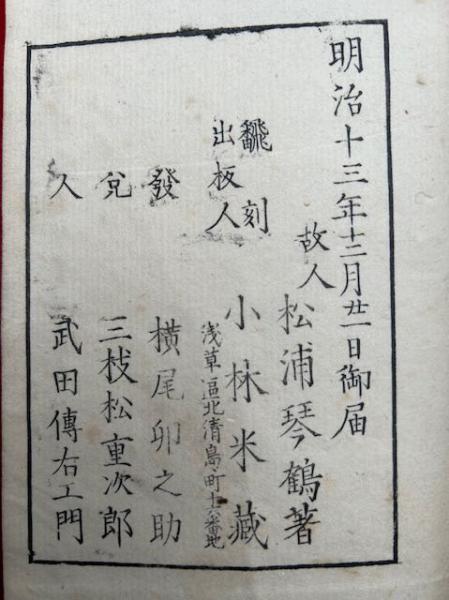 明治十三年十二月廿一日御届
故人 松浦琴鶴著
飜刻出板人 小林米藏
浅草區北清島町十六番地
發 横尾卯之助
兌 三枝松重次郎
人 武田傳右エ門